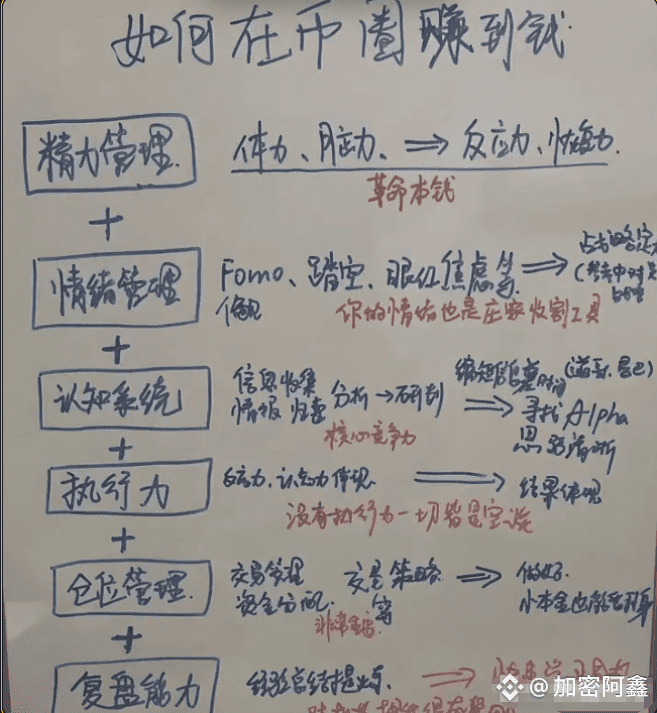 如何在币圈赚到钱
精力管理. 体力、脑力、⇒ 反应力、恢复力.
革命本钱
+
情绪管理 Fomo、踏空、眼红焦虑等 ⇒
偏见 你的情绪也是庄家收割工具
+
认知系统 信息收集 分析→研判 ⇒ 寻找Alpha
情报 归集 思路清晰
核心竞争力
+
执行力 反应力、认知力体现 ⇒ 结果体现
没有执行力一切皆是空谈
+
仓位管理. 交易管理 交易策略 ⇒ 做好.
资金分配, 等 小本金也能翻身
非常重要
+
复盘能力 经验总结提炼 ⇒
@加密阿鑫